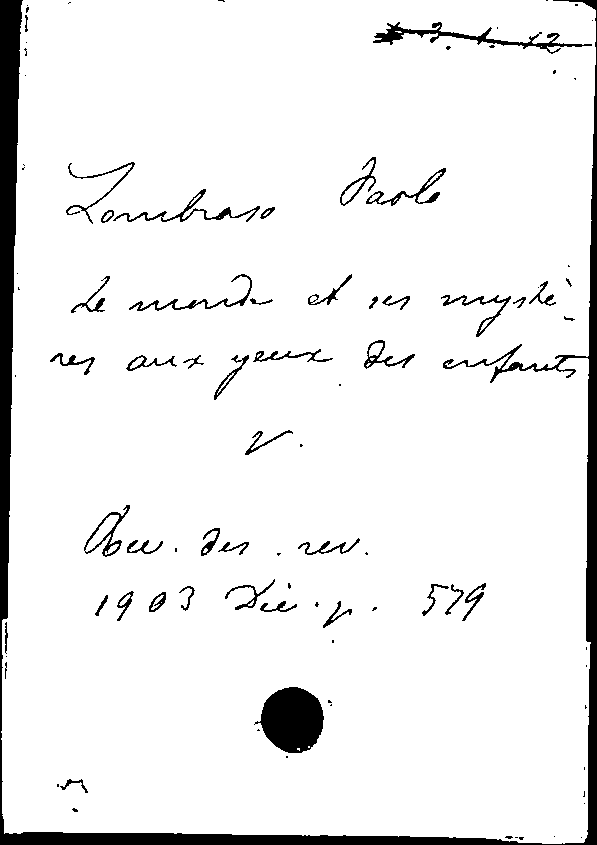 3. 1. 12
Lombroso Paola
Le monde et ses mystè-
res aux yeux des enfants
V.
Rev. des. rev.
1903 Déc. p. 579